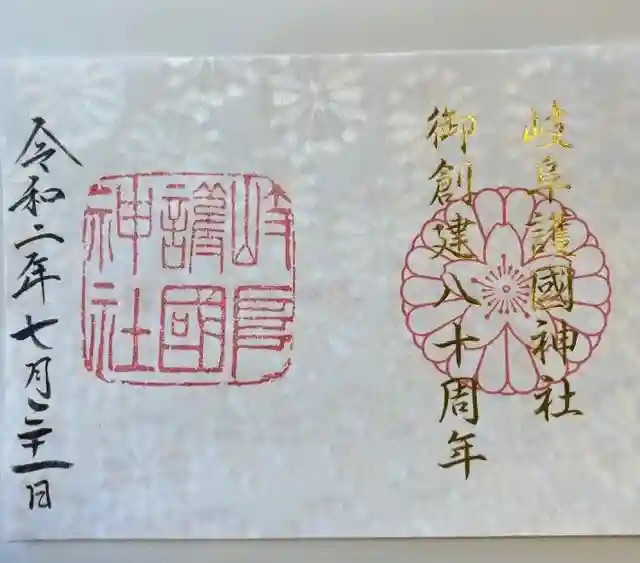 岐阜護國神社
御創建八十周年
岐阜
護國
神社
令和二年七月二十一日